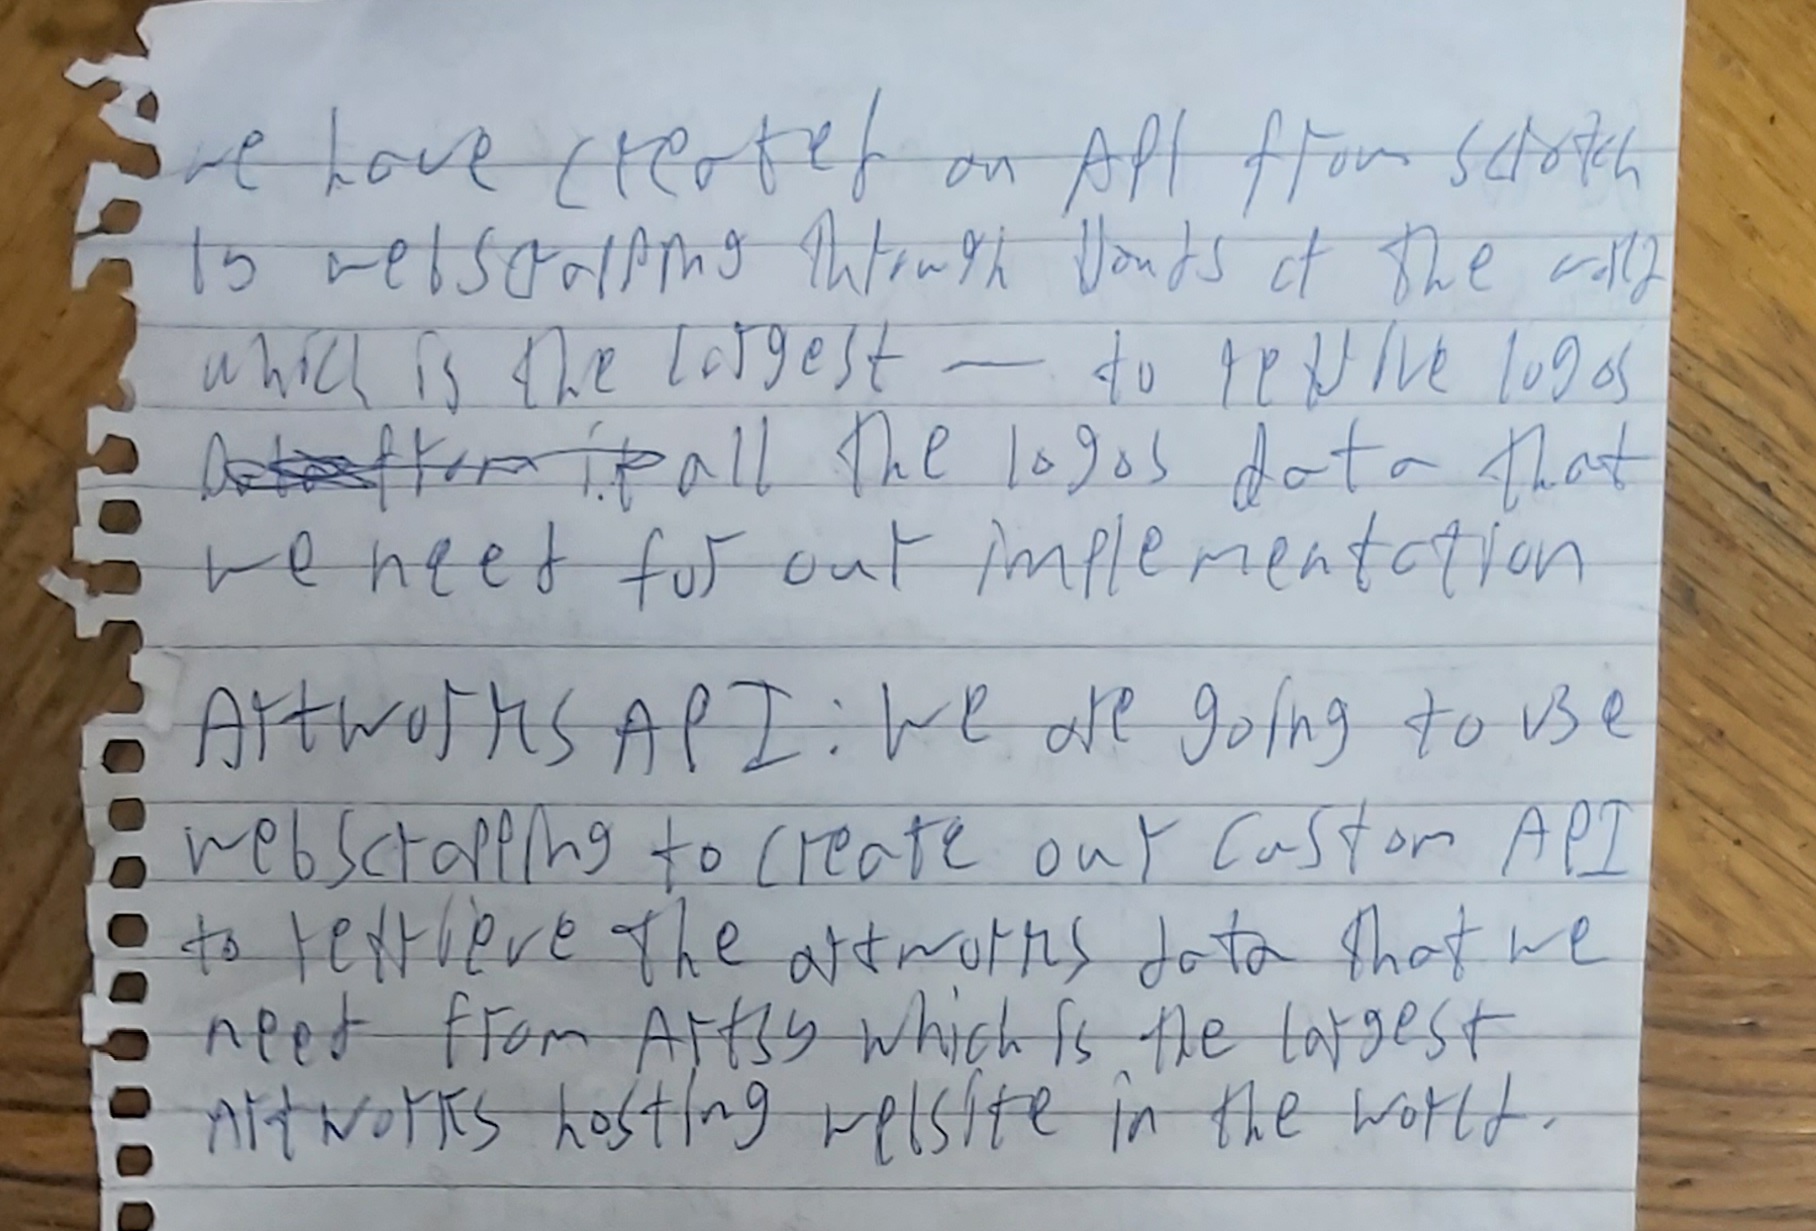 we have created an API from scratch
by webscrapping through Brands of the world
which is the largest — to retrive logos
all the logos data that
we need for our implementation
Artworks API: We are going to use
webscrapping to create our custom API
to retrieve the artworks data that we
need from Artsy which is the largest
Artworks hosting website in the world.